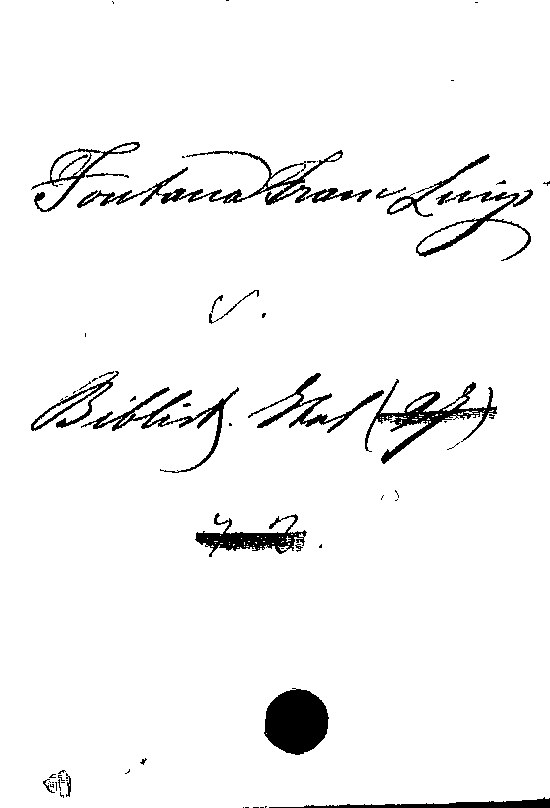 Fontana Gian Luigi
v.
Bibliot. Ital